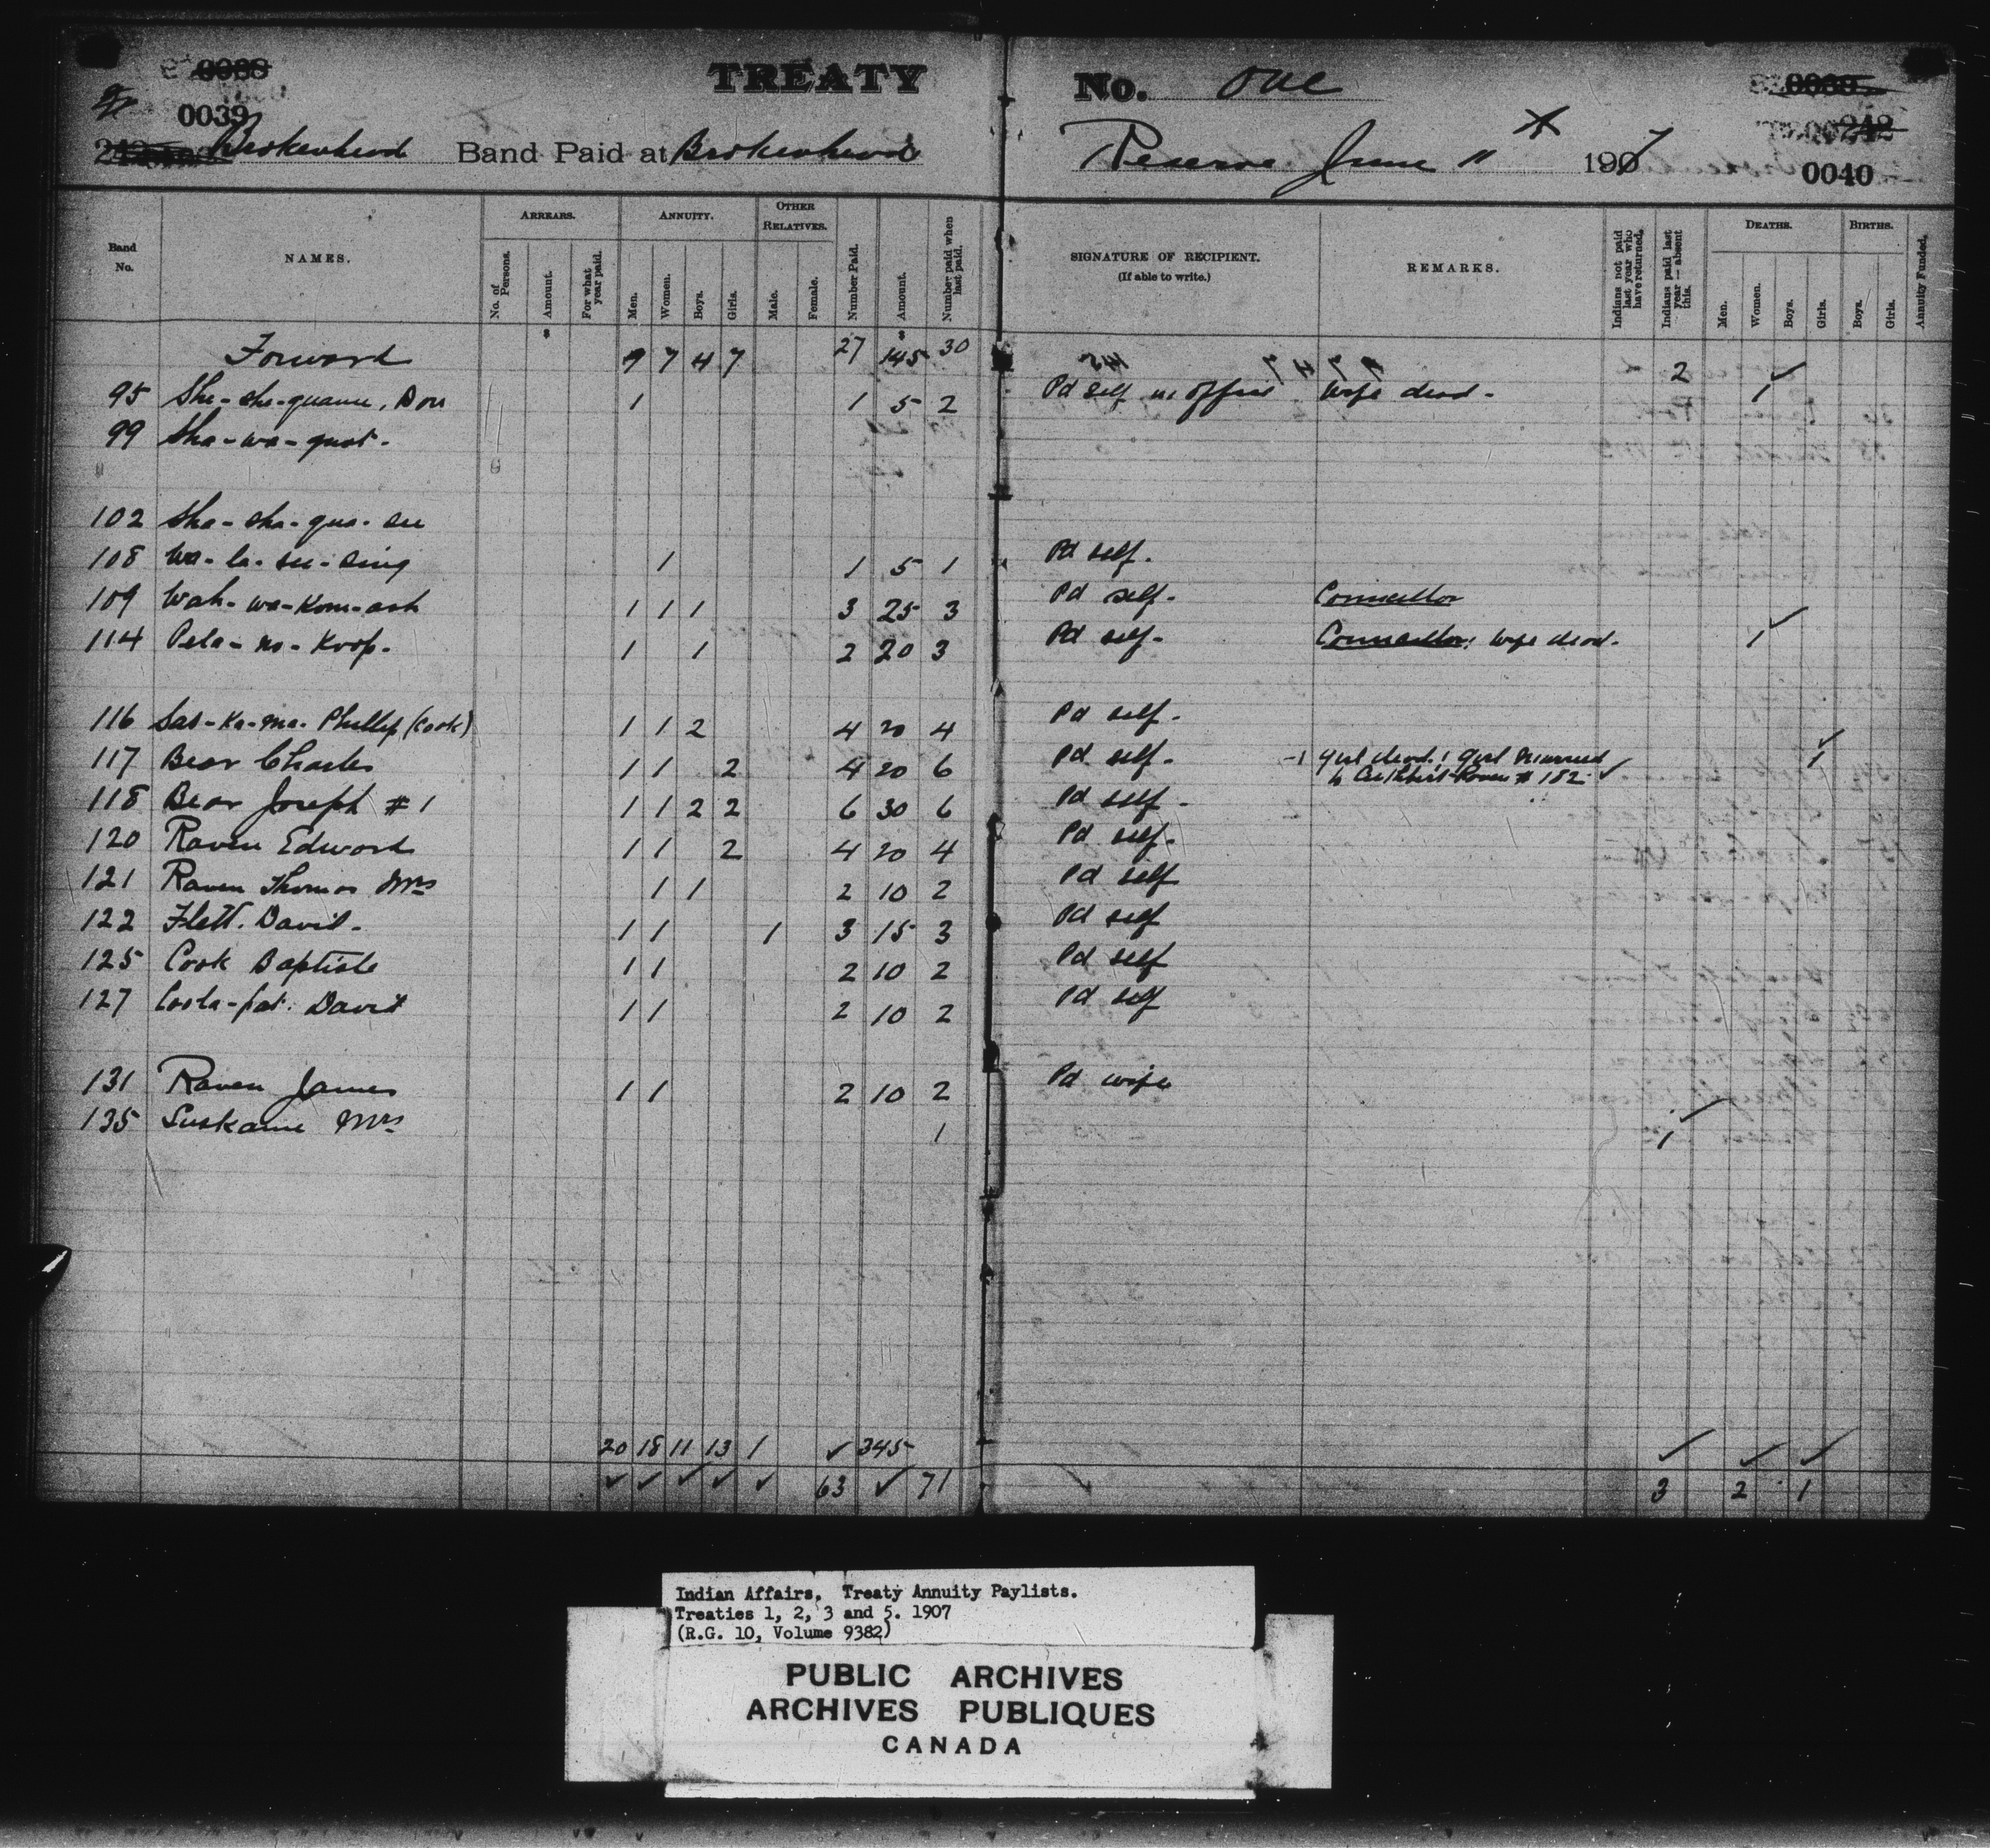 0039
TREATY No. One
0039 0040
Brokenhead Band Paid at Brokenhead Reserve June 11 1907
242 242
Band No. NAMES. ARREARS. ANNUITY. OTHER RELATIVES. Number Paid. Amount. Number paid when last paid. SIGNATURE OF RECIPIENT. (If able to write.) REMARKS. Indians not paid last year who have returned. Indians paid last year — absent this. DEATHS. BIRTHS. Annuity Funded.
No. of Persons. Amount. For what year paid. Men. Women. Boys. Girls. Male. Female. Men. Women. Boys. Girls. Boys. Girls.
$ $
Forward 9 7 4 7 27 145 30 2
95 She-she-quame, Don 1 1 5 2 Pd self in office Wife dead - 1
99 Sha-wa-quot.
102 Sha-sha-qua-see
108 Wa-la-see-sing 1 1 5 1 Pd self.
109 Wah-wa-kom-ash 1 1 1 3 25 3 Pd self. Councillor
114 Pela-no-koop. 1 1 2 20 3 Pd self. Councillor: Wife dead. 1
116 Sas-ka-ma. Phillip (Cook) 1 1 2 4 20 4 Pd self.
117 Bear Charles 1 1 2 4 20 6 Pd self. -1 girl dead: 1 girl married 1
to Raven #182 ✓
118 Bear Joseph #1 1 1 2 2 6 30 6 Pd self.
120 Raven Edward 1 1 2 4 20 4 Pd self.
121 Raven Thomas Mrs 1 1 2 10 2 Pd self
122 Flett. David. 1 1 1 3 15 3 Pd self
125 Cook Baptiste 1 1 2 10 2 Pd self
127 Coola-pat. David 1 1 2 10 2 Pd self
131 Raven James 1 1 2 10 2 Pd wife
135 Suskame Mrs 1 1
20 18 11 13 1 ✓ 345 ✓ ✓ ✓
✓ ✓ ✓ ✓ ✓ 63 ✓ 71 3 2 1
Indian Affairs. Treaty Annuity Paylists.
Treaties 1, 2, 3 and 5. 1907
(R.G. 10, Volume 9382)
PUBLIC ARCHIVES
ARCHIVES PUBLIQUES
CANADA